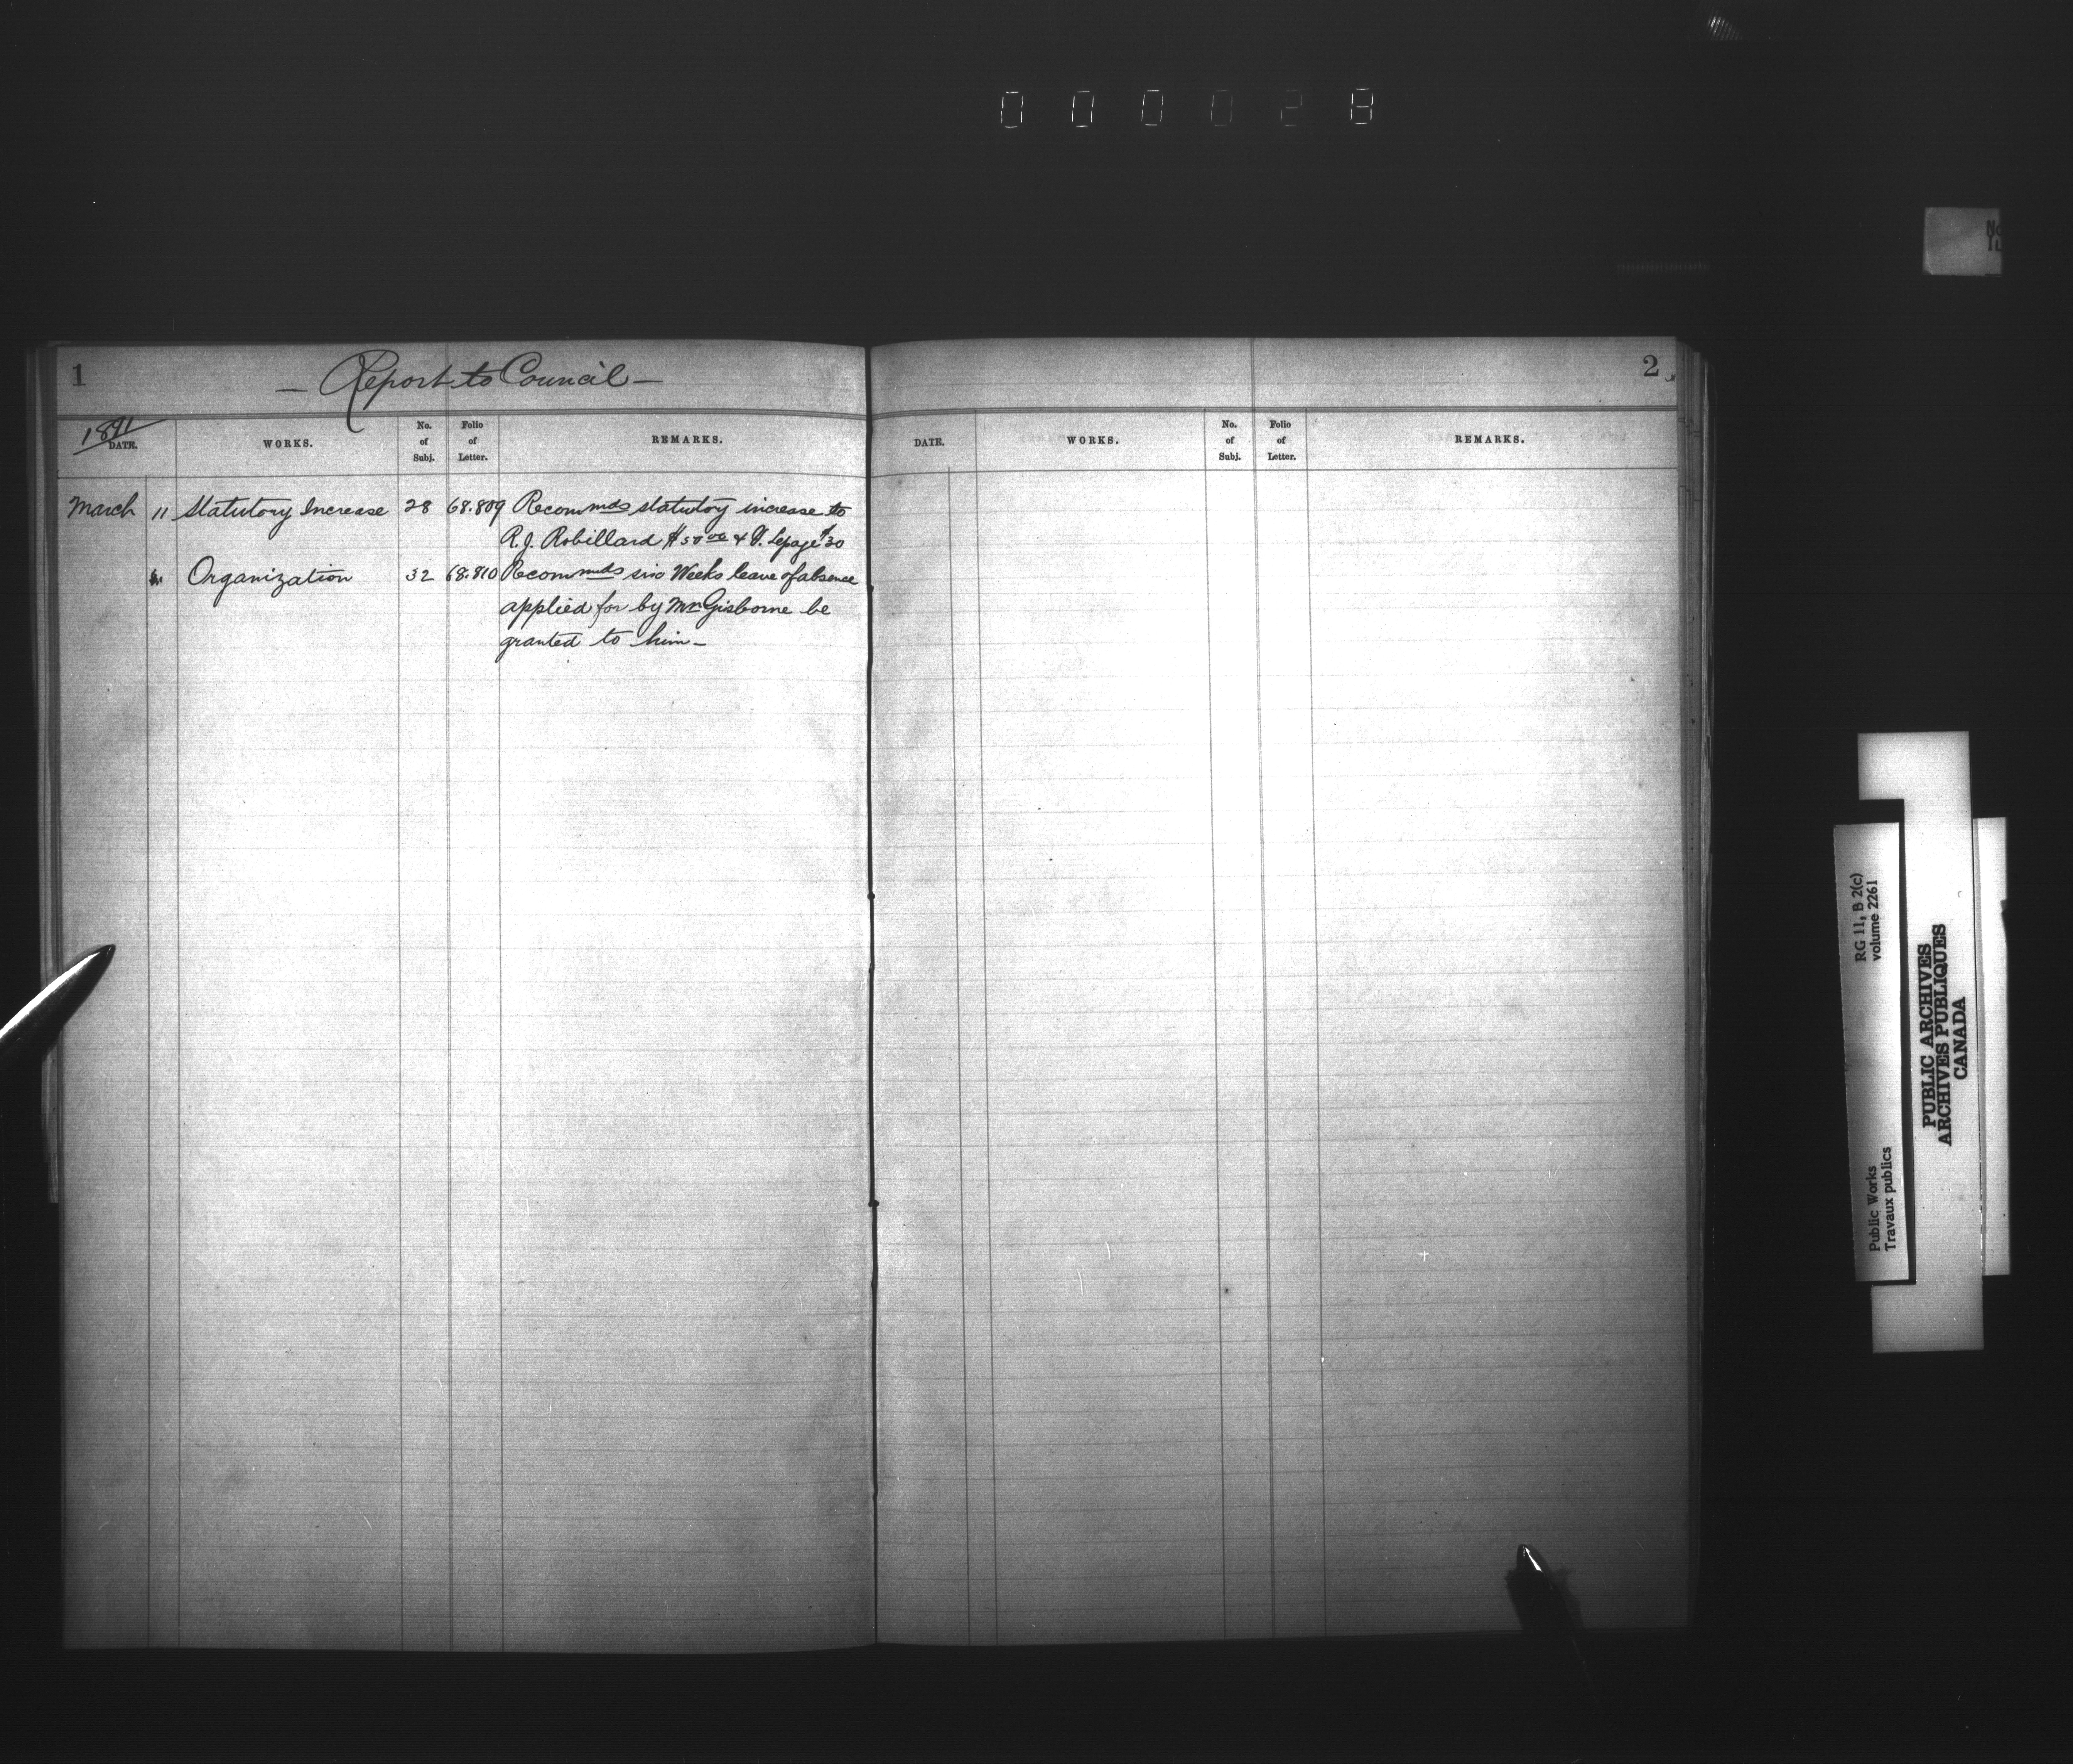 000028
No
1
— Report to Council —
1891
DATE. WORKS. No. of Subj. Folio of Letter. REMARKS.
March 11 Statutory Increase 28 68.809 Recommds statutory increase to
R.J. Robillard $50 00 & Lepage $30
Organization 32 68.810 Recommds six Weeks leave of absence
applied for by Mr. Gisborne be
granted to him —
2
DATE. WORKS. No. of Subj. Folio of Letter. REMARKS.
RG 11, B 2(c)
volume 2261
Public Works
Travaux publics
PUBLIC ARCHIVES
ARCHIVES PUBLIQUES
CANADA